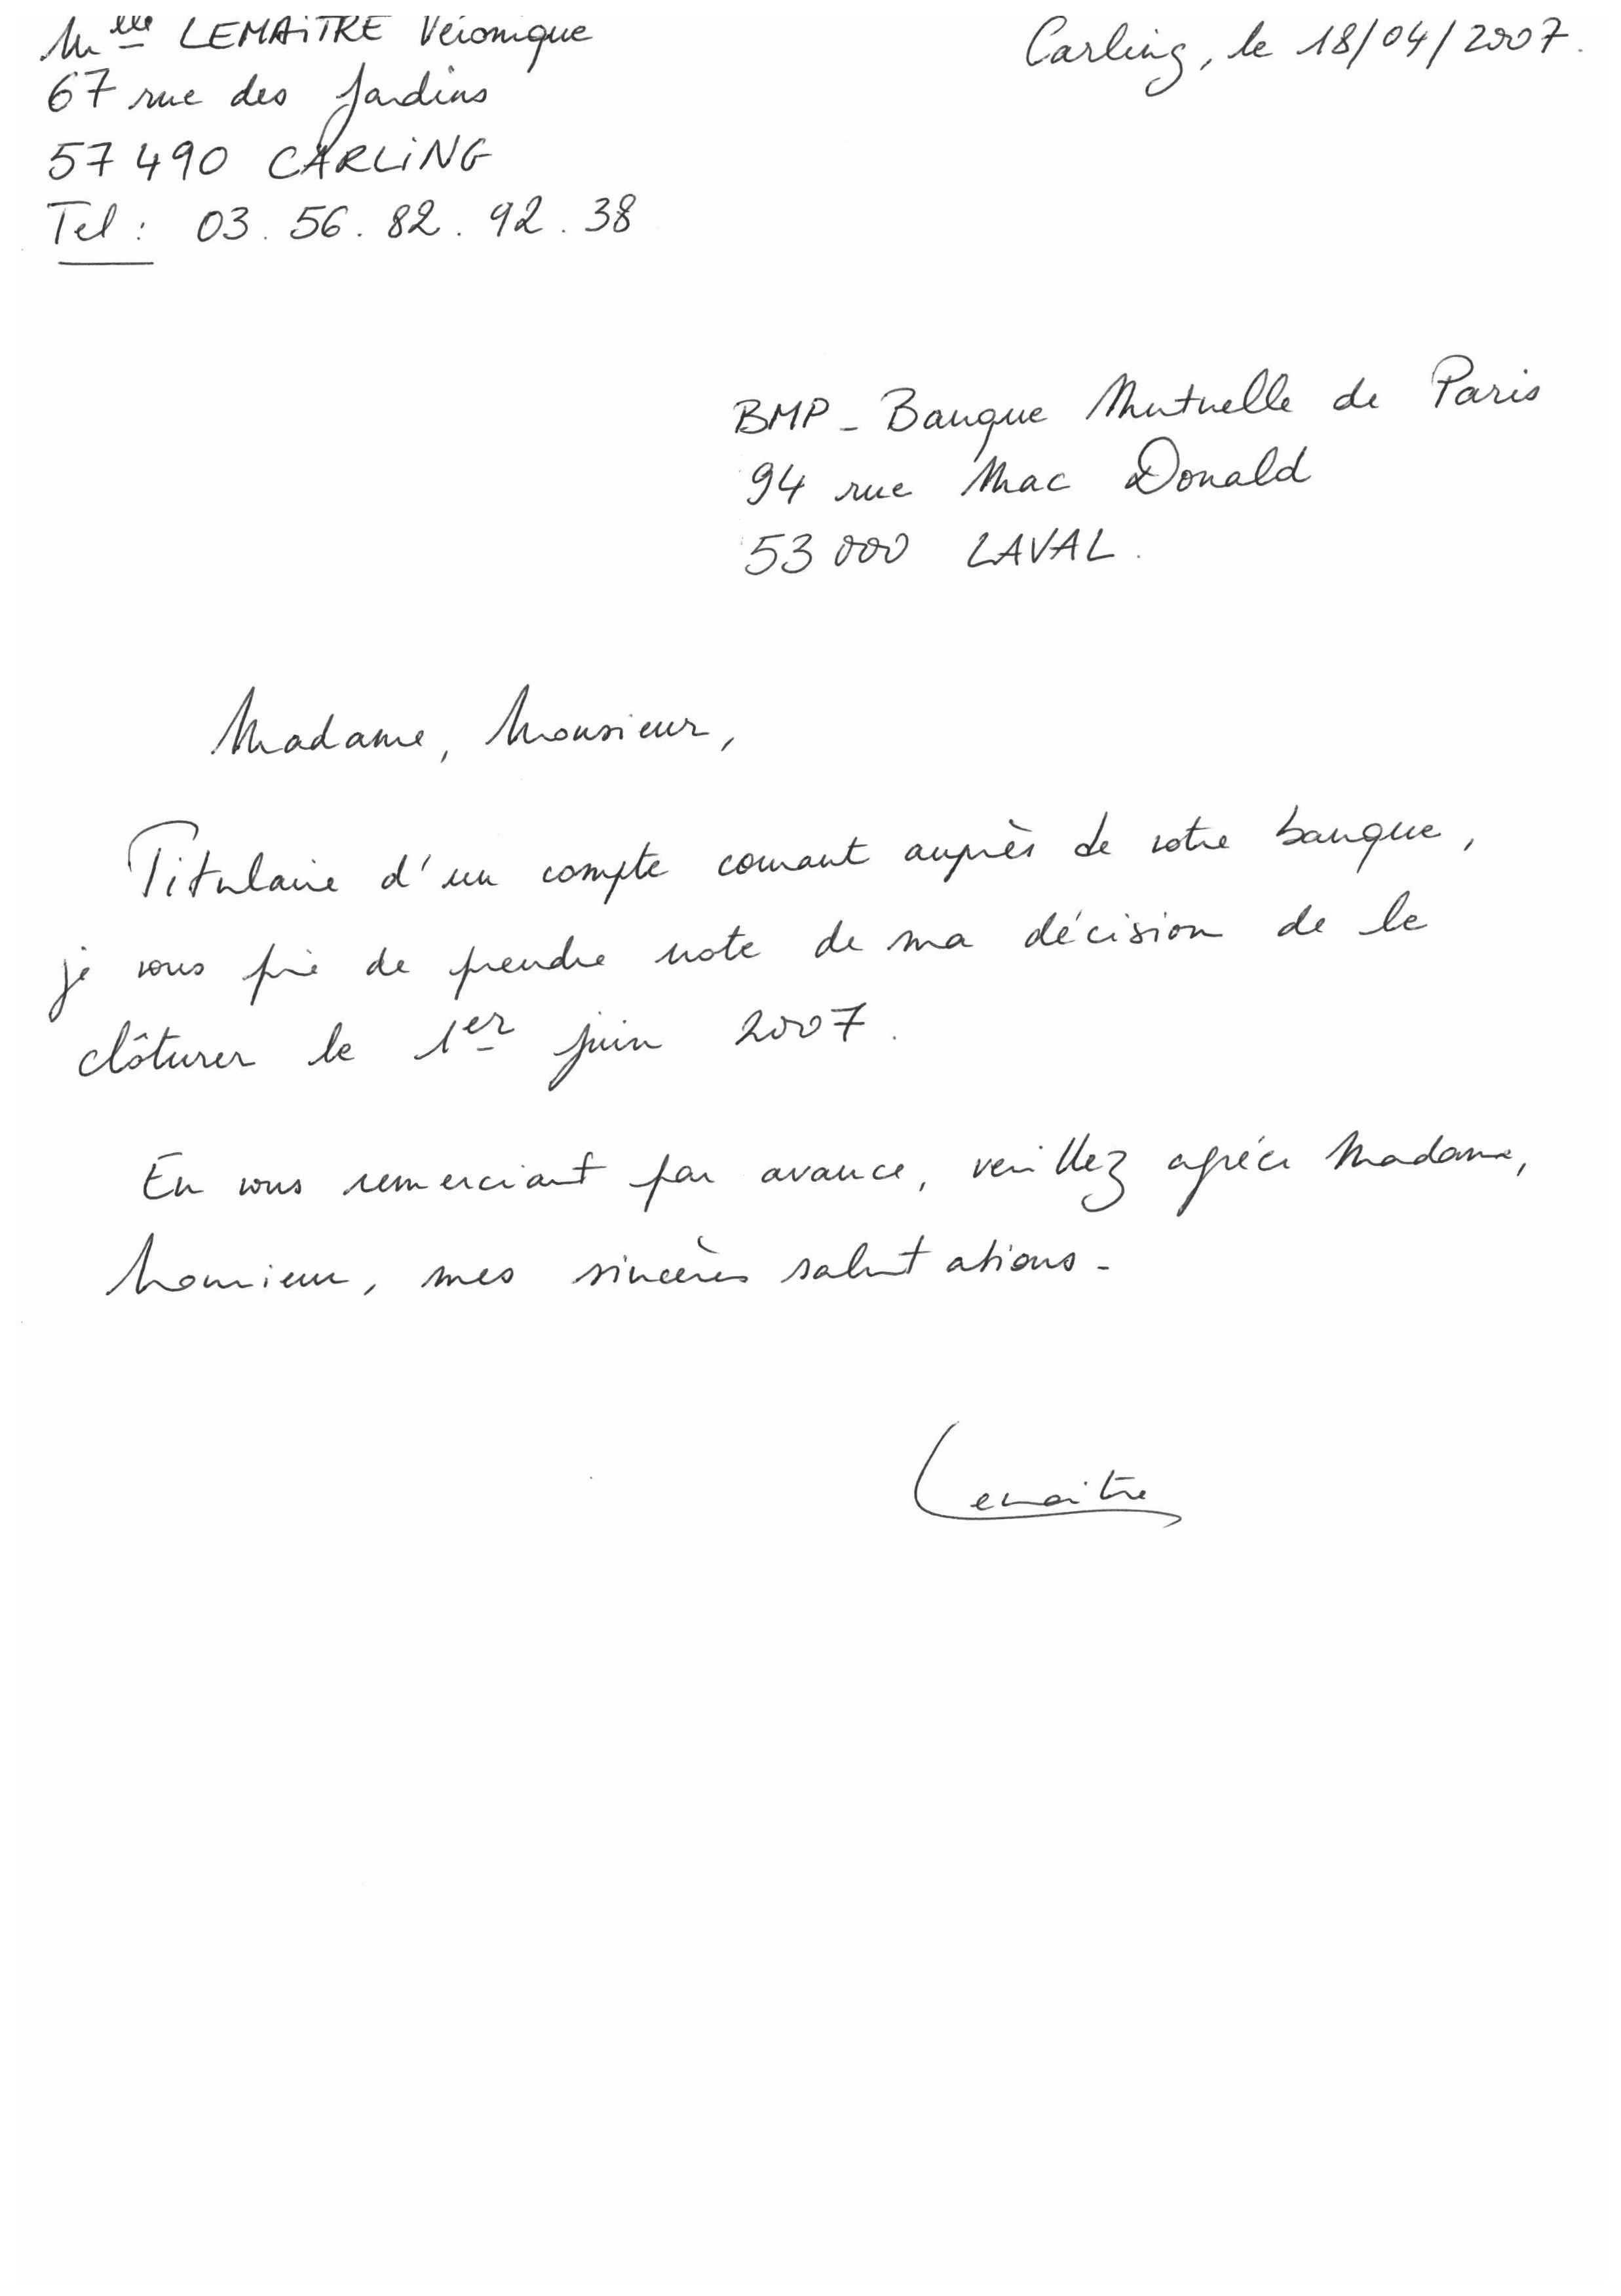 Mlle LEMAiTRE Véronique
Carling, le 18/04/2007.
67 rue des Jardins
57490 CARLiNG
Tel : 03.56.82.92.38
BMP - Banque Mutuelle de Paris
94 rue Mac Donald
53000 LAVAL.
Madame, Monsieur,
Titulaire d'un compte courant auprès de votre banque,
je vous prie de prendre note de ma décision de le
clôturer le 1er juin 2007.
En vous remerciant par avance, veuillez agréer Madame,
Monsieur, mes sincères salutations.
Lemaitre